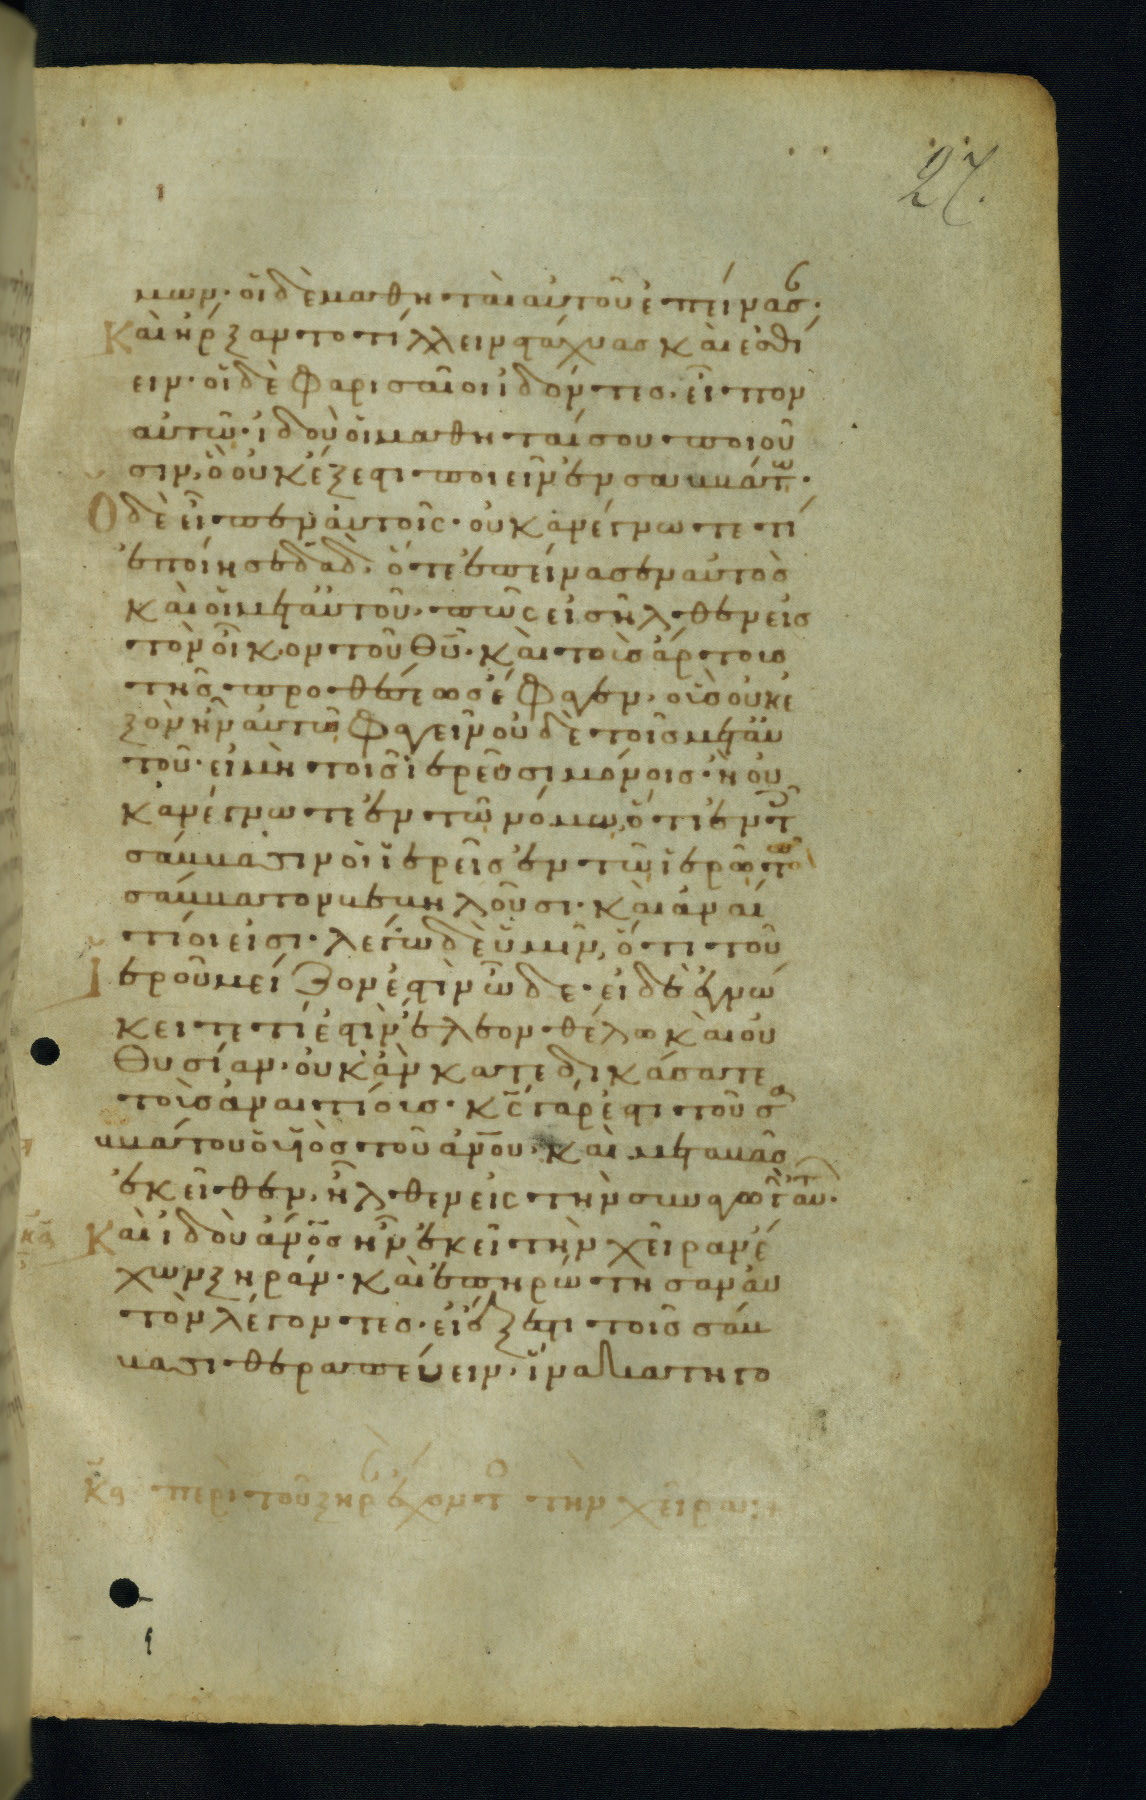 27.
μων· οἱ δὲ μαθηταὶ αὐτοῦ ἐπείνασ·
Καὶ ἤρξαντο τίλλειν στάχυας καὶ ἐσθί
ειν· οἱ δὲ Φαρισαῖοι ἰδόντες, εἶπον
αὐτῶ· ἰδοὺ οἱ μαθηταί σου ποιοῦ
σιν, ὃ οὐκ ἔξεστι ποιεῖν ἐν σαββάτ·
Ὁ δὲ εἶπεν αὐτοῖς· οὐκ ἀνέγνωτε τί
ἐποίησε δαδ, ὅτε ἐπείνασεν αὐτὸς
καὶ οἱ μετ' αὐτοῦ· πῶς εἰσῆλθεν εἰς
τὸν οἶκον τοῦ θυ· καὶ τοὺς ἄρτους
τῆς προθέσεως ἔφαγεν, οὓς οὐκ ἐ
ξὸν ἦν αὐτῶ φαγεῖν οὐδὲ τοῖς μετ' αὐ
τοῦ· εἰ μὴ τοῖς ἱερεῦσι μόνοις· ἢ οὐ
κ ἀνέγνωτε ἐν τῶ νόμω, ὅτι ἐν τ
σάββασιν οἱ ἱερεῖς ἐν τῶ ἱερῶ τὸ
σάββατον βεβηλοῦσι· καὶ ἀναί
τιοί εἰσι· λέγω δὲ ὑμῖν, ὅτι τοῦ
ἱεροῦ μεῖζον ἐστὶν ὧδε· εἰ δὲ ἐγνώ
κειτε τί ἐστὶν ἔλεον θέλω καὶ οὐ
θυσίαν· οὐκ ἂν κατεδικάσατε
τοὺς ἀναιτίους· κς γάρ ἐστι τοῦ σα
ββάτου ὁ υἱὸς τοῦ ἀνου· καὶ μεταβὰς
ἐκεῖθεν, ἦλθεν εἰς τὴν συναγωγὴν αὐτ·
κα Καὶ ἰδοὺ ἀνος ἦν ἐκεῖ τὴν χεῖρα ἔ
χων ξηράν· καὶ ἐπηρώτησαν αὐ
τὸν λέγοντες· εἰ ἔξεστι τοῖς σάβ
βασι θεραπεύειν, ἵνα κατηγο
κα περὶ τοῦ ξηρὰν ἔχοντος τὴν χεῖρα:+